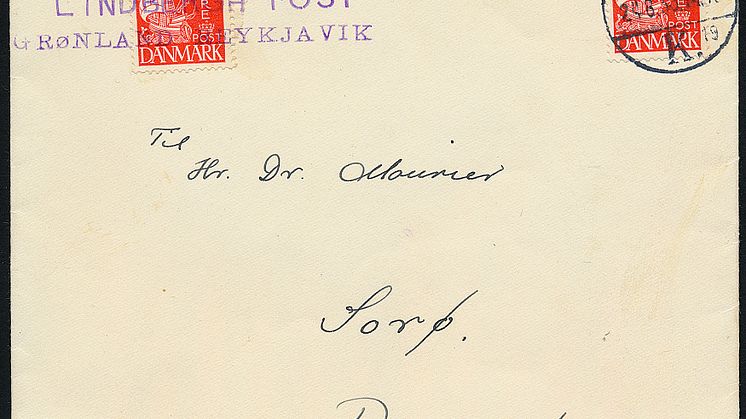 LINDBERGH POST
GRØNLAND REYKJAVIK
ØRE
POST
DANMARK
POST
DANMARK
K.
19
Til
Hr. Dr. Mourier
Sorø.